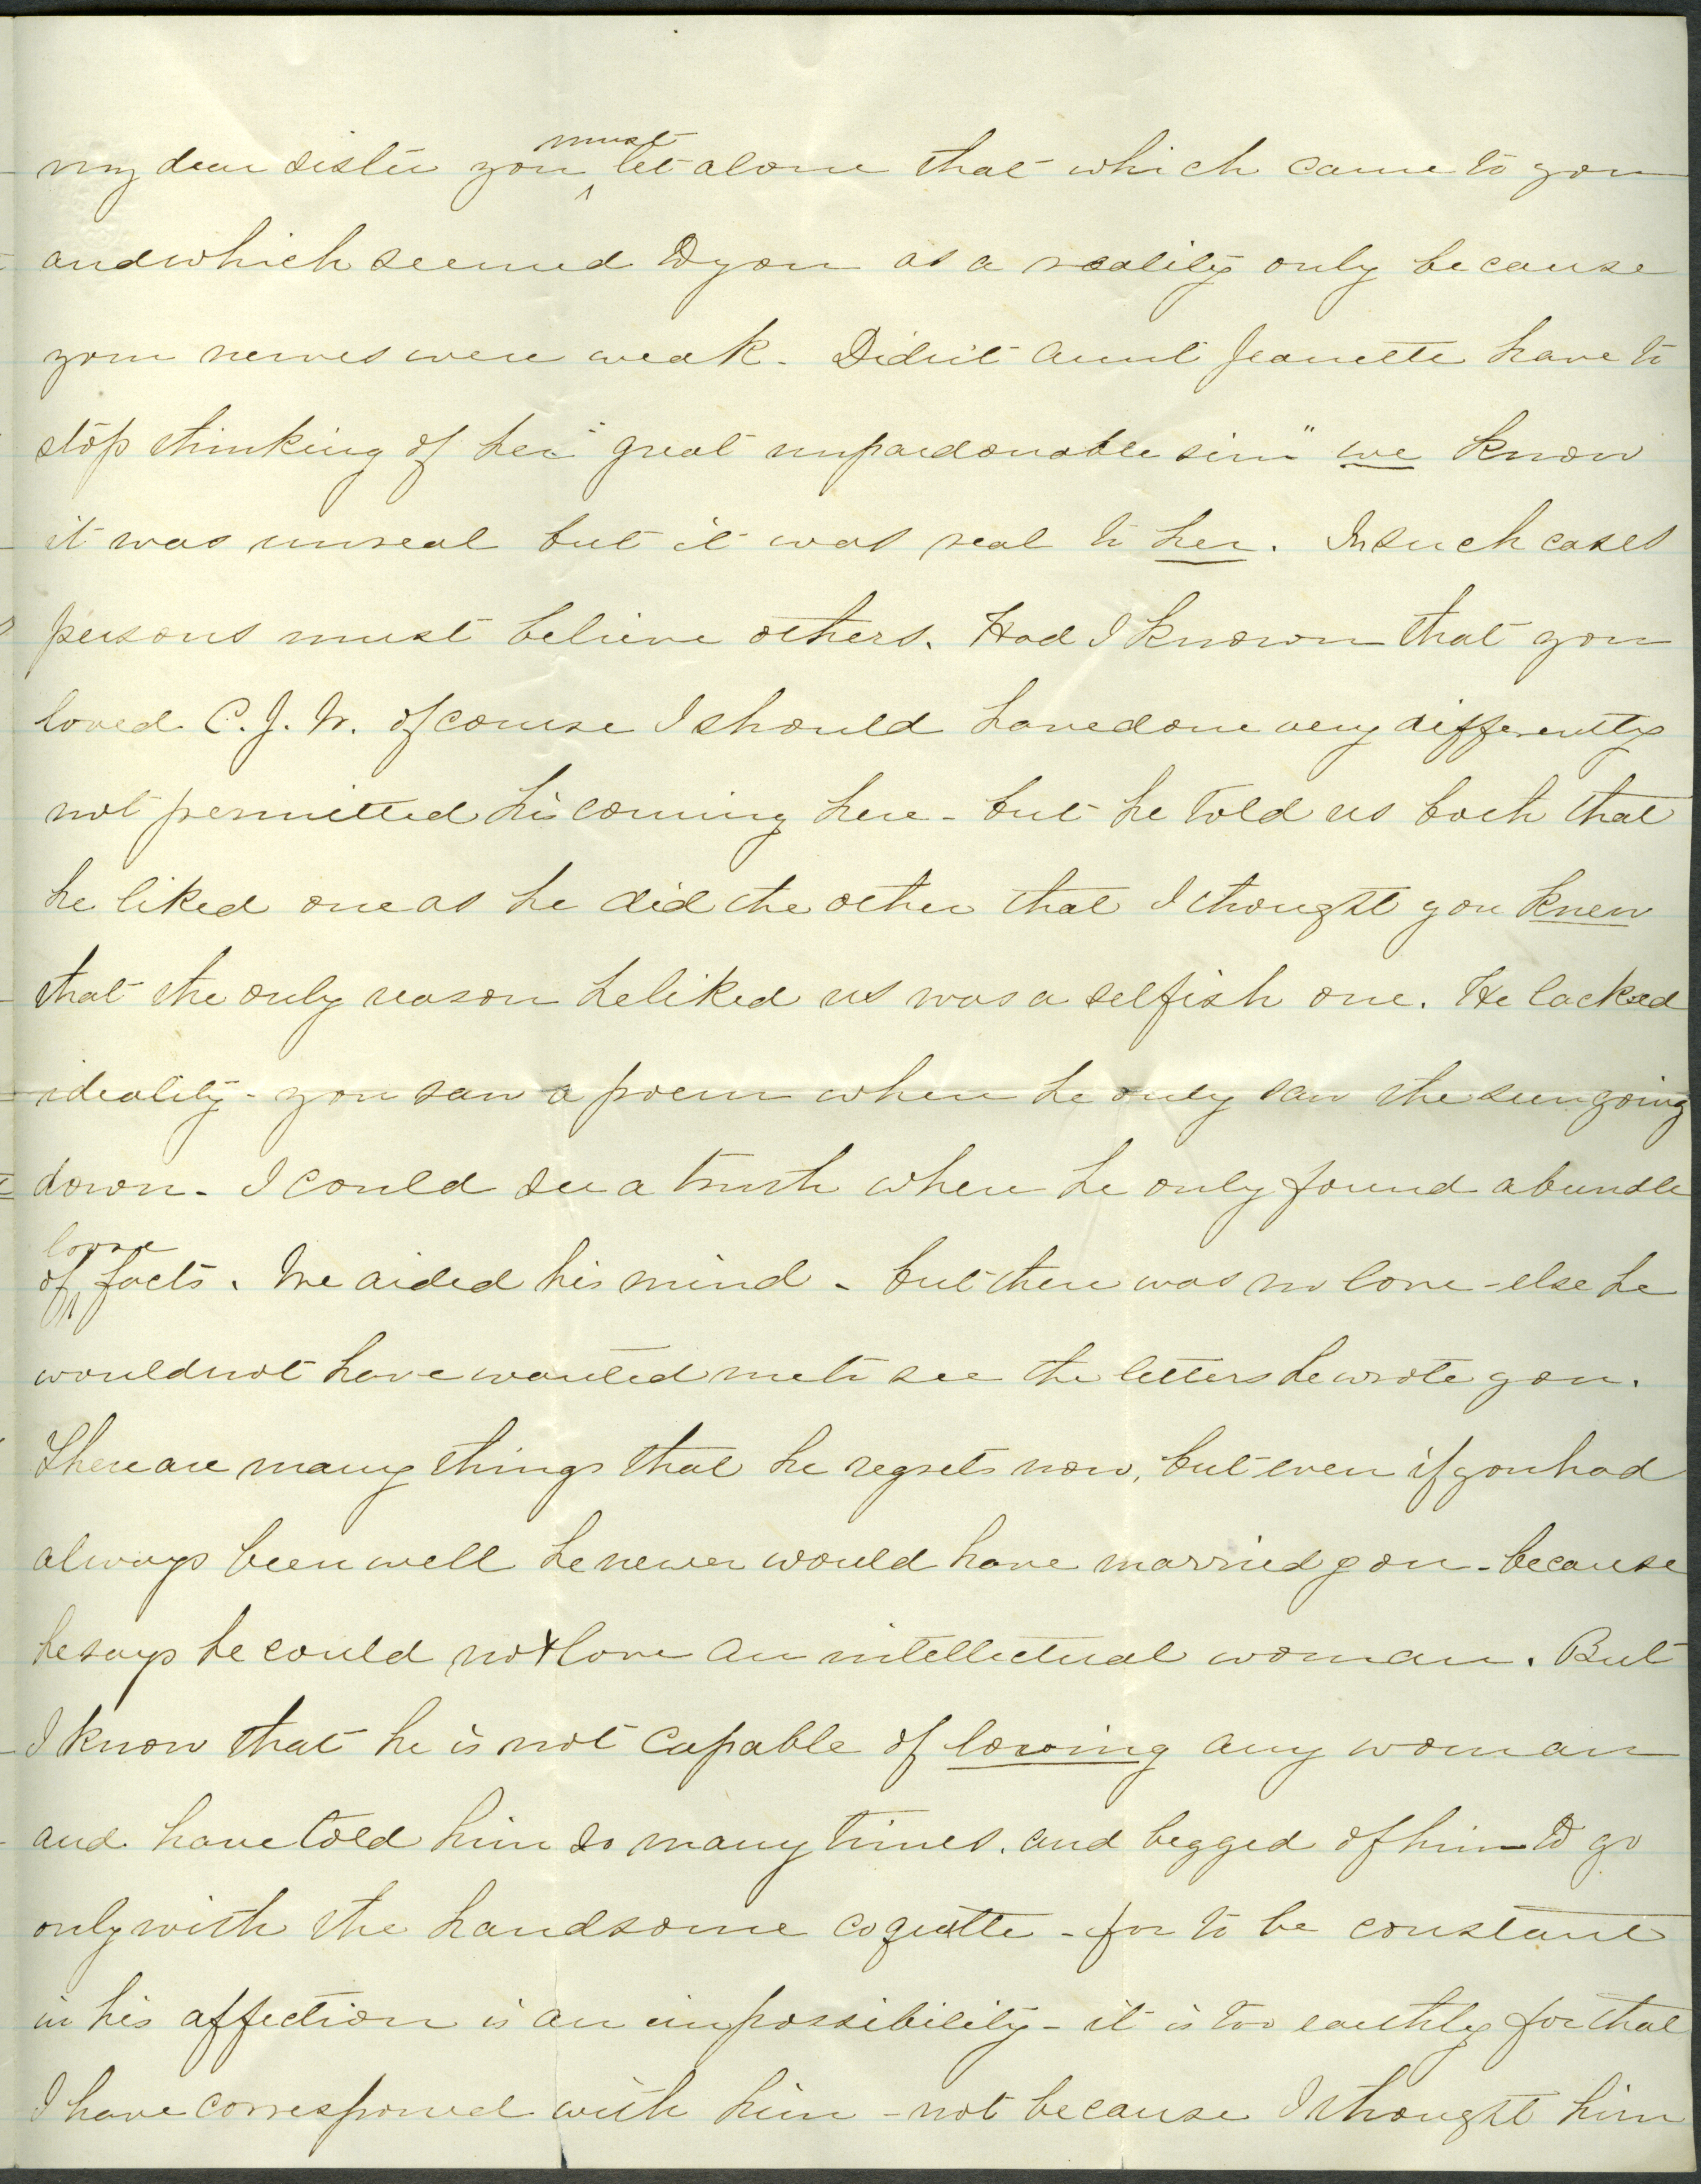 my dear sister you must let alone that which came to you
and which seemed to you as a reality only because
your nerves were weak. Didn't Aunt Jeanette have to
stop thinking of her "great unpardonable sin" we know
it was unreal but it was real to her. In such cases
persons must believe others. Had I known that you
loved C. J. W. of course I should have done very differently
not permitted his coming here - but he told us both that
he liked one as he did the other that I thought you knew
that the only reason he liked us was a selfish one. He lacked
ideality - you saw a poem when he only saw the sun going
down. I could see a truth when he only found a bundle
of loose facts. We aided his mind - but there was no love - else he
would not have wanted me to see the letters he wrote you.
There are many things that he regrets now, but even if you had
always been well he never would have married you - because
he says he could not love an intellectual woman. But
I know that he is not capable of loving any woman
and have told him so many times. and begged of him to go
only with the handsome coquette - for to be constant
in his affection is an impossibility - it is too earthly for that
I have correspond with him - not because I thought him